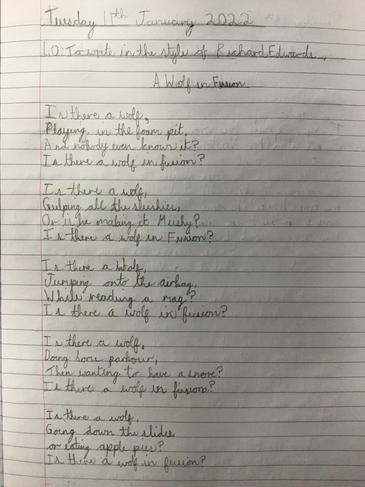 Tuesday 11th January 2022
L.O: To write in the style of Richard Edwards.
A Wolf in Fusion
Is there a wolf,
Playing in the foam pit,
And nobody even knows it?
Is there a wolf in fusion?
Is there a wolf,
Gulping all the slushies,
Or is he making it Mushy?
Is there a wolf in Fusion?
Is there a wolf,
Jumping onto the airbag,
While reading a mag?
Is there a wolf in fusion?
Is there a wolf,
Doing some parkour,
Then wanting to have a snore?
Is there a wolf in fusion?
Is there a wolf,
Going down the slides
or eating apple pies?
Is there a wolf in fusion?